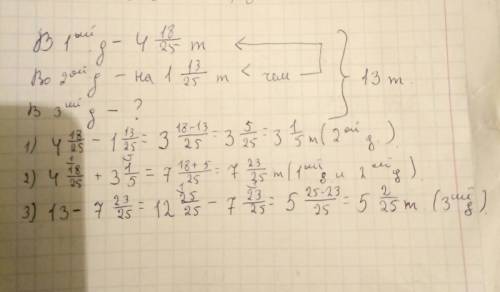 В 1ый д – 4 18/25 т
Во 2ой д – на 1 13/25 т < чем } 13 т.
В 3ий д – ?
1) 4 18/25 – 1 13/25 = 3 18–13/25 = 3 5/25 = 3 1/5 т (2ой д.)
2) 4 18/25 + 3 1/5 = 7 18+5/25 = 7 23/25 т (1ый д и 2ой д)
3) 13 – 7 23/25 = 12 25/25 – 7 23/25 = 5 25–23/25 = 5 2/25 т (3ий д)